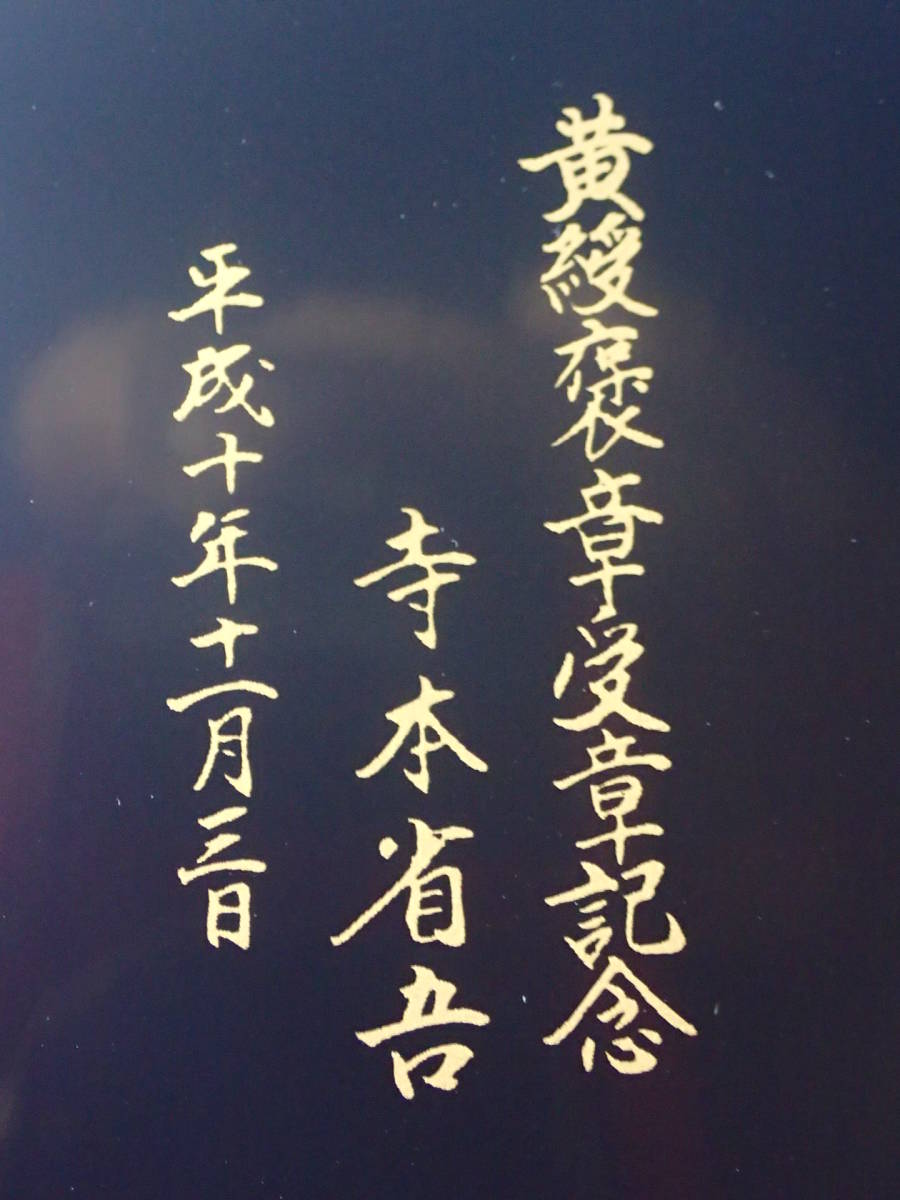 黄綬褒章受章記念
寺本省吾
平成十年十一月三日